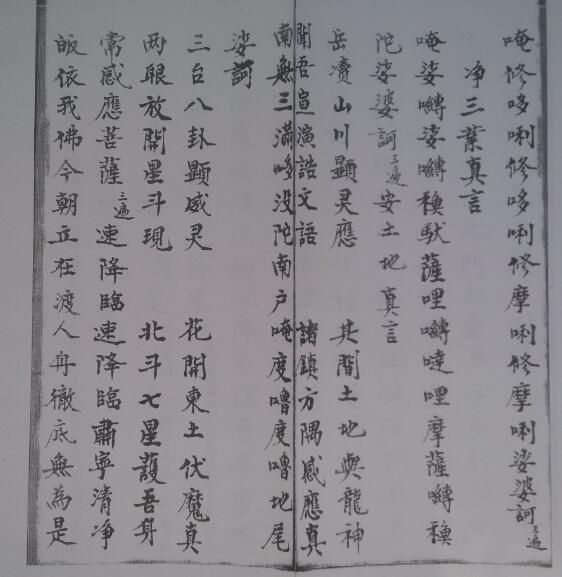 唵修哆唎修哆唎修摩唎修摩唎娑婆訶三遍
净三業真言
唵娑嚩娑嚩秧馱薩哩嚩噠哩摩薩嚩秧
陀娑婆訶三遍 安土地真言
岳凟山川顕灵應 其間土地與龍神
聞吾宣演誥文語 諸鎮方隅感應真
南無三满哆没陀南户唵度嚕度嚕地尾
娑訶
三台八卦顕威灵 花開東土伏魔真
两眼放開星斗現 北斗七星護吾身
常感應菩薩三遍 速降臨速降臨肅寧清净
皈依我佛今朝立在渡人舟徹底無為是